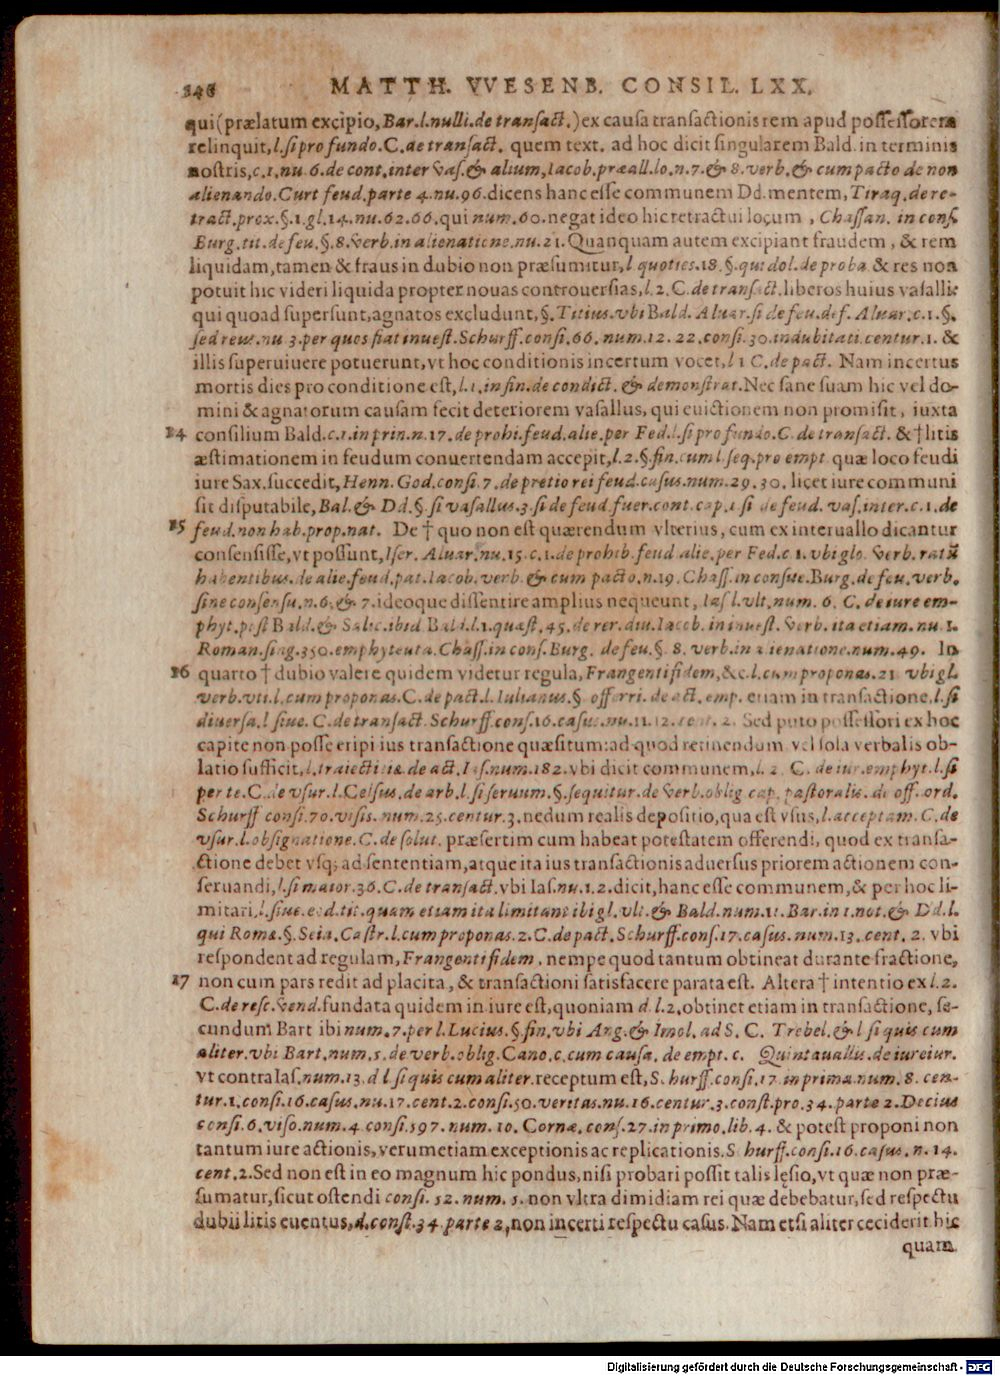 348 MATTH. VVESENB. CONSIL. LXX.
qui (prælatum excipio, Bar. l. nulli. de transact.) ex causa transactionis rem apud possessorem
relinquit, l. si pro fundo. C. de transact. quem text. ad hoc dicit singularem Bald. in terminis
nostris, c. 1. nu. 6. de cont. inter vas. & alium, Iacob. præall. lo. n. 7. & 8. verb. & cum pacto de non
alienando. Curt feud. parte 4. nu. 96. dicens hanc esse communem Dd. mentem, Tiraq. de re-
tract. prox. §. 1. gl. 14. nu. 62. 66. qui num. 60. negat ideo hic retractui locum, Chassan. in cons.
Burg. tit. de feu. §. 8. verb. in alienatione. nu. 21. Quanquam autem excipiant fraudem, & rem
liquidam, tamen & fraus in dubio non præsumitur, l quoties. 18. §. qui dol. de proba & res non
potuit hic videri liquida propter nouas controuersias, l. 2. C. de transact. liberos huius vasalli:
qui quoad supersunt, agnatos excludunt, §. Titius. vbi Bald. Aluar. si de feu. def. Aluar. c. 1. §.
sed rem. nu 3. per quos fiat inuest. Schurff. consi. 66. num. 12. 22. consi. 30. indubitati. centur. 1. &
illis superuiuere potuerunt, vt hoc conditionis incertum vocet, l 1 C. de pact. Nam incertus
mortis dies pro conditione est, l. 1. in fin. de condict. & demonstrat. Nec sane suam hic vel do-
mini & agnatorum causam fecit deteriorem vasallus, qui euictionem non promisit, iuxta
14 consilium Bald. c. 1. in prin. n. 17. de prohi. feud. alie. per Fed. l. si pro fundo. C. de transact. & † litis
æstimationem in feudum conuertendam accepit, l. 2. §. fin. cum l. seq. pro empt. quæ loco feudi
iure Sax. succedit, Henn. God. consi. 7. de pretio rei feud. casus. num. 29. 30. licet iure communi
sit disputabile, Bal. & Dd. §. si vasallus. 3. si de feud. fuer. cont. cap. 1 si de feud. vas. inter. c. 1. de
15 feud. non hab. prop. nat. De † quo non est quærendum vlterius, cum ex interuallo dicantur
consensisse, vt possunt, Iser. Aluar. nu. 15. c. 1. de prohib. feud alie. per Fed. c 1. vbi glo. verb. ratũ
habentibus. de alie. feud. pat. Iacob. verb. & cum pacto. n. 19. Chass. in consue. Burg. de feu. verb.
sine consensu. n. 6. & 7. ideoque dissentire amplius nequeunt, Ias l. vlt. num. 6. C. de iure em-
phyt. post Bald. & Salic. ibid Bald. l. 1. quæst. 45. de rer. diu. Iacob. in inuest. verb. ita etiam. nu 1.
Roman. sing. 350. emphyteuta. Chass. in cons. Burg. de feu. §. 8. verb. in alienatione. num. 49. In
16 quarto † dubio valere quidem videtur regula, Frangenti fidem, &c. l. cum proponas. 21 vbi gl.
verb. vti. l. cum proponas. C. de pact. l. Iulianus. §. offerri. de act. emp. etiam in transactione. l. si
diuersa. l siue. C. de transact. Schurff. cons. 16. casus. nu. 11. 12. cent. 2. Sed puto possessori ex hoc
capite non posse eripi ius transactione quæsitum: ad quod retinendum vel sola verbalis ob-
latio sufficit, l. traiectitiæ. de act. Ias. num. 182. vbi dicit communem, l. 2. C. de iur. emphyt. l. si
per te. C. de vsur. l. Celsus. de arb. l. si seruum. §. sequitur. de verb. oblig cap. pastoralis. de off. ord.
Schurff consi. 70. visis. num. 25. centur. 3. nedum realis depositio, qua est vsus, l. acceptam. C. de
vsur. l. obsignatione. C. de solut. præsertim cum habeat potestatem offerendi, quod ex transa-
ctione debet vsq; ad sententiam, atque ita ius transactionis aduersus priorem actionem con-
seruandi, l. si maior. 36. C. de transact. vbi Ias. nu. 1. 2. dicit, hanc esse communem, & per hoc li-
mitari, l. siue. eod. tit. quam etiam ita limitant ibi gl. vlt. & Bald. num. 11. Bar. in 1. not. & Dd. l.
qui Romæ. §. Seia. Castr. l. cum proponas. 2. C. de pact. Schurff. cons. 17. casus. num. 13. cent. 2. vbi
respondent ad regulam, Frangenti fidem. nempe quod tantum obtineat durante fractione,
17 non cum pars redit ad placita, & transactioni satisfacere parata est. Altera † intentio ex l. 2.
C. de resc. vend. fundata quidem in iure est, quoniam d l. 2. obtinet etiam in transactione, se-
cundum Bart ibi num. 7. per l. Lucius. §. fin. vbi Ang. & Imol. ad S. C. Trebel. & l si quis cum
aliter. vbi Bart. num. 5. de verb. oblig. Cano. c. cum causa. de empt. c. Quintauallis. de iureiur.
vt contra Ias. num. 13. d l. si quis cum aliter. receptum est, Schurff. consi. 17. in prima. num. 8. cen-
tur. 1. consi. 16. casus. nu. 17. cent. 2. consi. 50. veritas. nu. 16. centur. 3. const. pro. 34. parte 2. Decius
consi. 6. viso. num. 4. consi. 597. num. 10. Cornæ. cons. 27. in primo. lib. 4. & potest proponi non
tantum iure actionis, verum etiam exceptionis ac replicationis. Schurff. consi. 16. casus. n. 14.
cent. 2. Sed non est in eo magnum hic pondus, nisi probari possit talis lęsio, vt quæ non præ-
sumatur, sicut ostendi consi. 52. num. 5. non vltra dimidiam rei quæ debebatur, sed respectu
dubii litis euentus, d. const. 34. parte 2, non incerti respectu casus. Nam etsi aliter ceciderit hic
quam
Digitalisierung gefördert durch die Deutsche Forschungsgemeinschaft - DFG